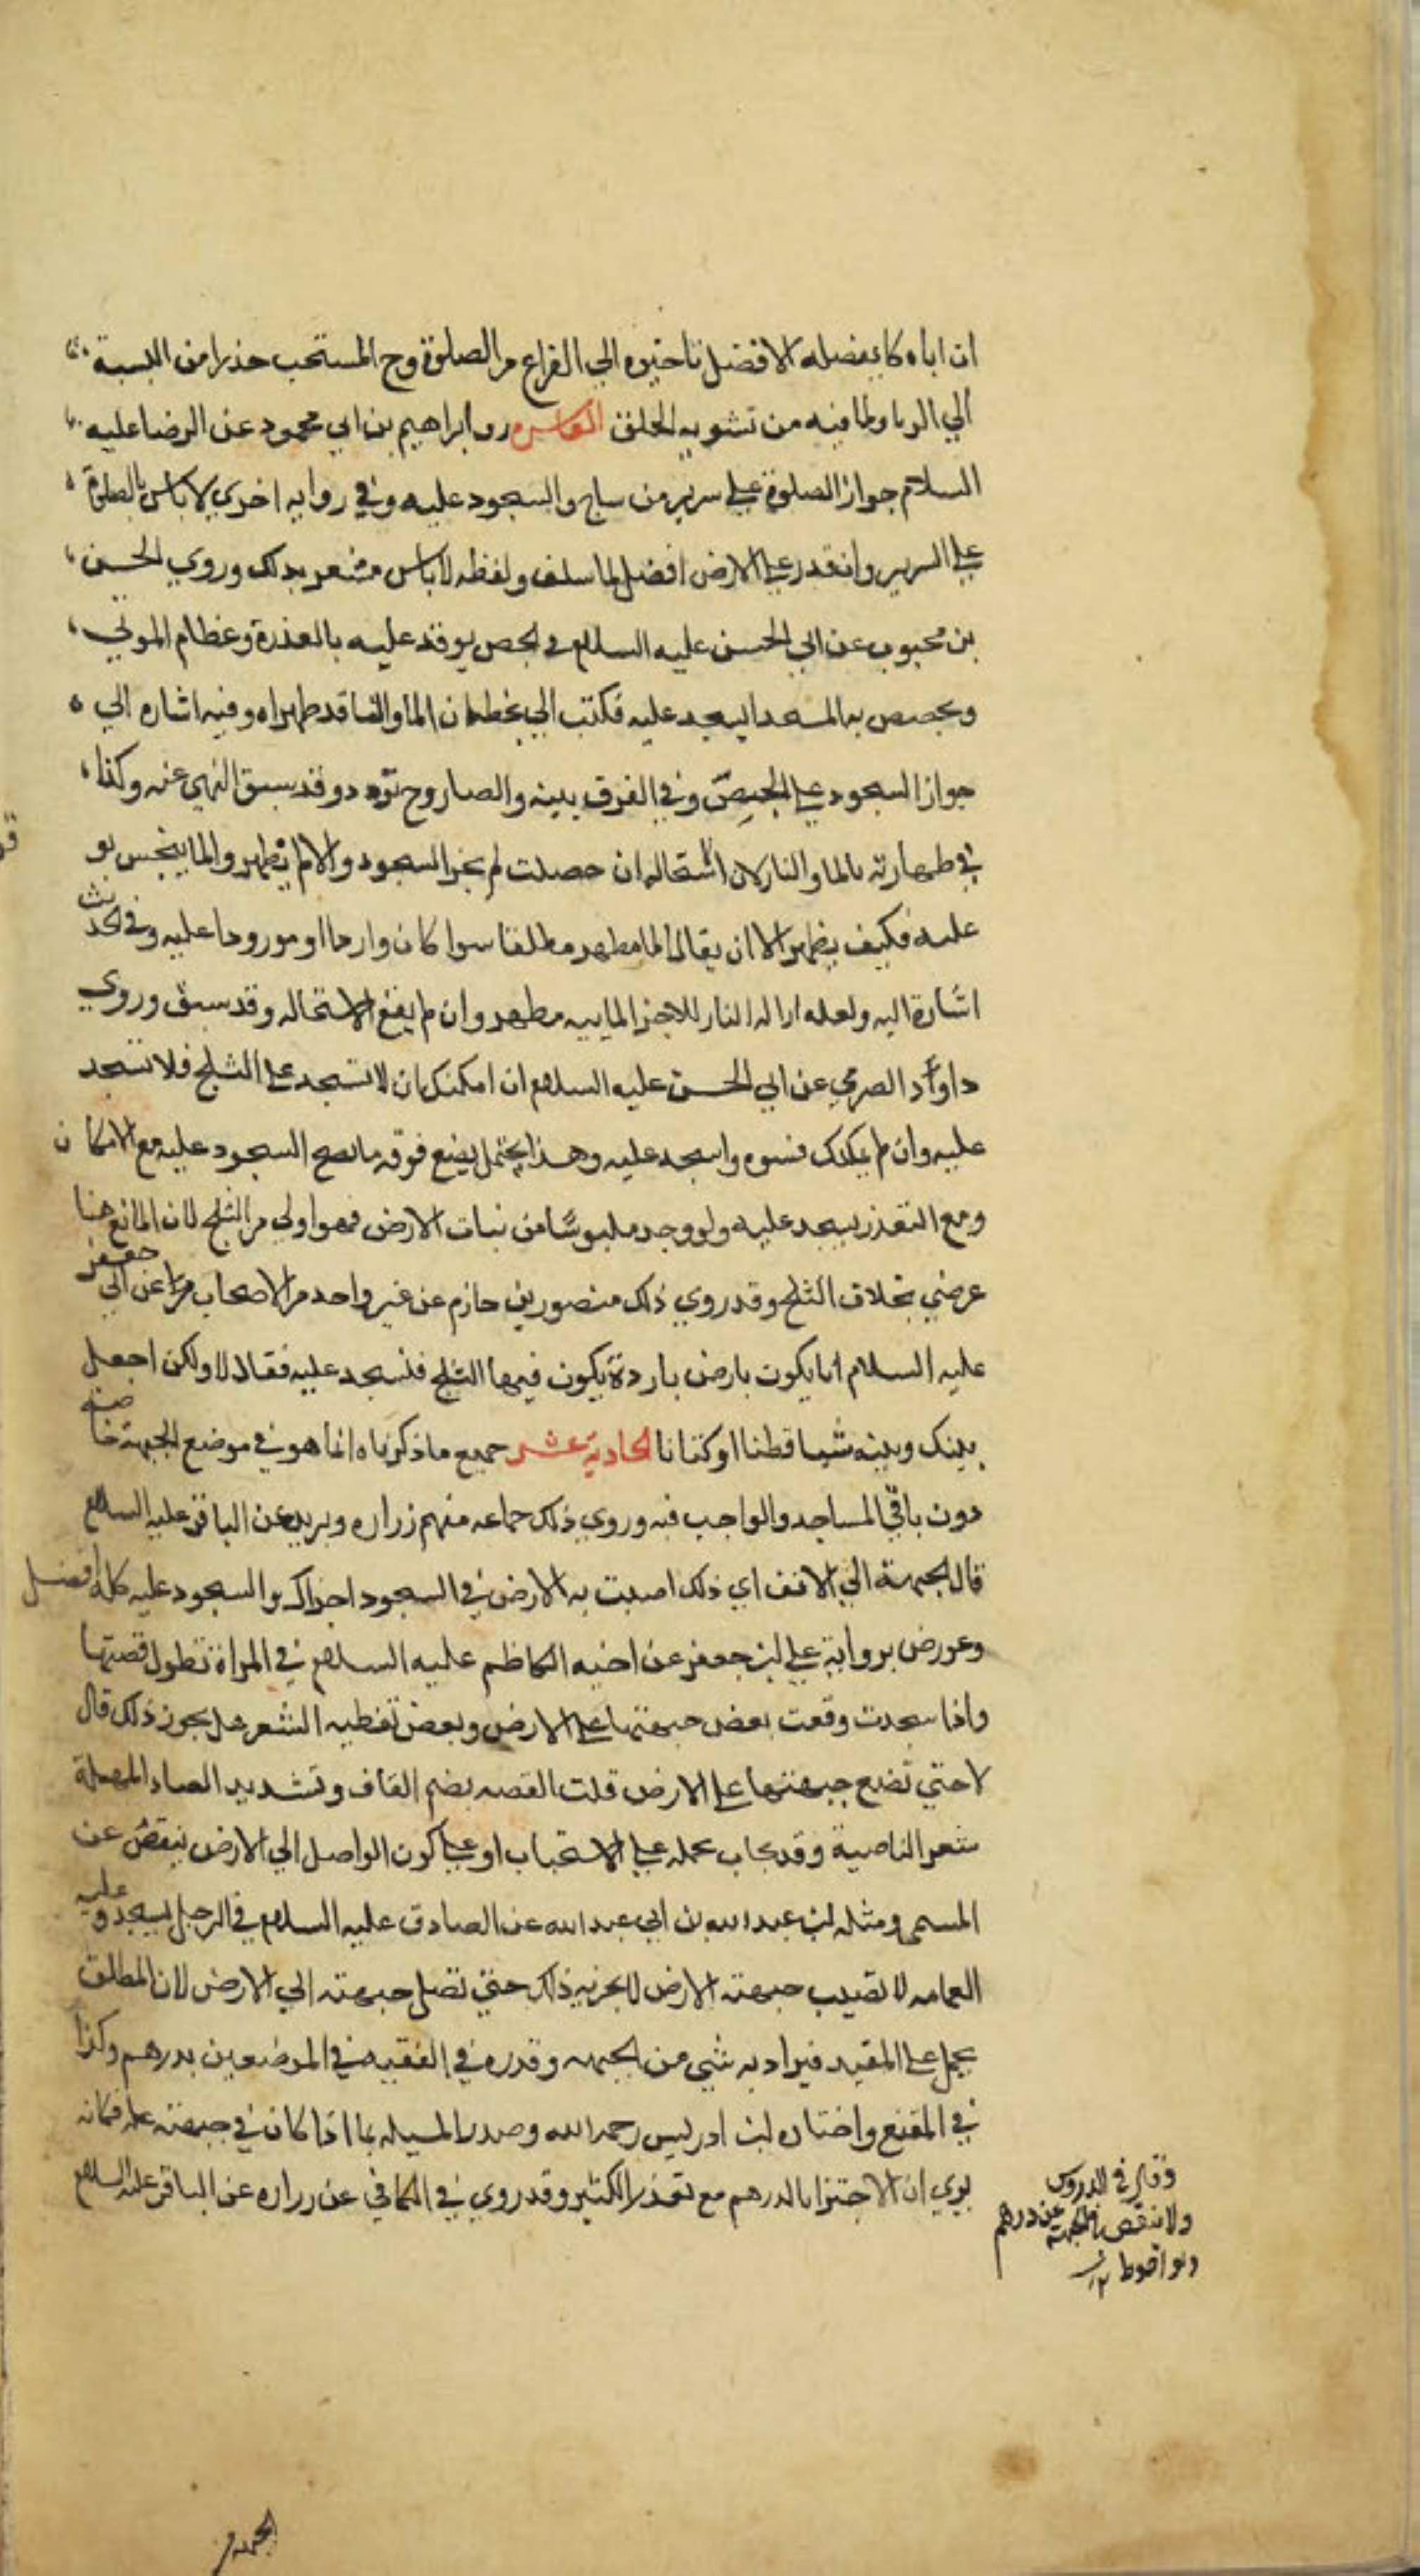 ان اباه كا يفعله الافضل تاخيره الي الفراغ من الصلوة وح المستحب حذرا من النسبة
الي الريا ولما فيه من تشويه الخلق العاشرة روي ابراهيم بن ابي محمود عن الرضا عليه
السلام جواز الصلوة علي سرير من ساج والسجود عليه وفي رواية اخري لا باس بالصلوة
علي السرير وان قدر علي الارض افضل لما سلف ولفظه لاباس مشعر بذلك وروي الحسن
بن محبوب عن ابي الحسن عليه السلام في الجص يوقد عليه بالعذرة وعظام الموتي
ويجصص به المسجد ايسجد عليه فكتب الي بخطه ان الما والنار قد طهراه وفيه اشاره الي
جواز السجود علي الجص وفي الفرق بينه والصاروج تردد وقد سبق النهي عنه وكذا
في طهارته بالما والنار لان استحاله ان حصلت لم يجز السجود والا لم يطهر والما ينجس بو
عليه فكيف يطهر الا ان يقال الما مطهر مطلقا سوا كان واردا او مورودا عليه وفي الحديث
اشارة اليه ولعله ازاله النار للاجزا الماييه مطهر وان لم يقع الاستحاله وقد سبق وروي
داود الصرمي عن ابي الحسن عليه السلام ان امكنك ان لا تسجد علي الثلج فلا تسجد
عليه وان لم يمكنك فسوه واسجد عليه وهذا يحتمل يضع فوقه ما يصح السجود عليه مع الامكان
ومع التعذر يسجد عليه ولو وجد ملبوسا من نبات الارض فهو اولي من الثلج لان المانع هنا
عرضي بخلاف الثلج وقد روي ذلك منصور بن حازم عن غير واحد من الاصحاب عن ابي جعفر
عليه السلام انا يكون بارض باردة يكون فيها الثلج فنسجد عليه فقال لا ولكن اجعل
بينك وبينه شيا قطنا او كتانا الحادية عشر جميع ما ذكرناه انما هو في موضع الجبهة خاصه
دون باقي المساجد والواجب فيه وروي ذلك جماعه منهم زراره وبريد عن الباقر عليه السلام
قال الجبهة الي الانف اي ذلك اصبت به الارض في السجود اجزاك والسجود عليه كله افضل
وعورض برواية علي بن جعفر عن اخيه الكاظم عليه السلام في المراة تطول قصتها
واذا سجدت وقعت بعض جبهتها علي الارض وبعض تغطيه الشعر هل يجوز ذلك قال
لا حتي تضع جبهتها علي الارض قلت القصه بضم القاف وتشديد الصاد المهملة
شعر الناصية وقد يجاب بحمله علي الاستحباب او علي كون الواصل الي الارض ينقص عن
المسمي ومثله لبن عبد الله بن ابي عبد الله عن الصادق عليه السلام في الرجل يسجد وعليه
العمامه لا تصيب جبهته الارض لا يجزيه ذلك حتي تصل جبهته الي الارض لان المطلق
يحمل علي المقيد فيراد به شي من الجبهه وقدره في الفقيه في الموضعين بدرهم وكذا
في المقنع واختاره ابن ادريس رحمه الله وصدر المسيله بما اذا كان في جبهته عله فكانه
يري ان الاجتزا بالدرهم مع تعذر الكثير وقد روي في الكافي عن زراره عن الباقر عليه السلام
وقال في الدروس
ولا ينقص في الجبهة عن درهم